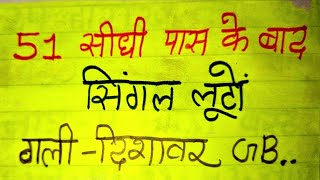 51 सीधी पास के बाद
सिंगल लूटों
गली -दिशावर GB..